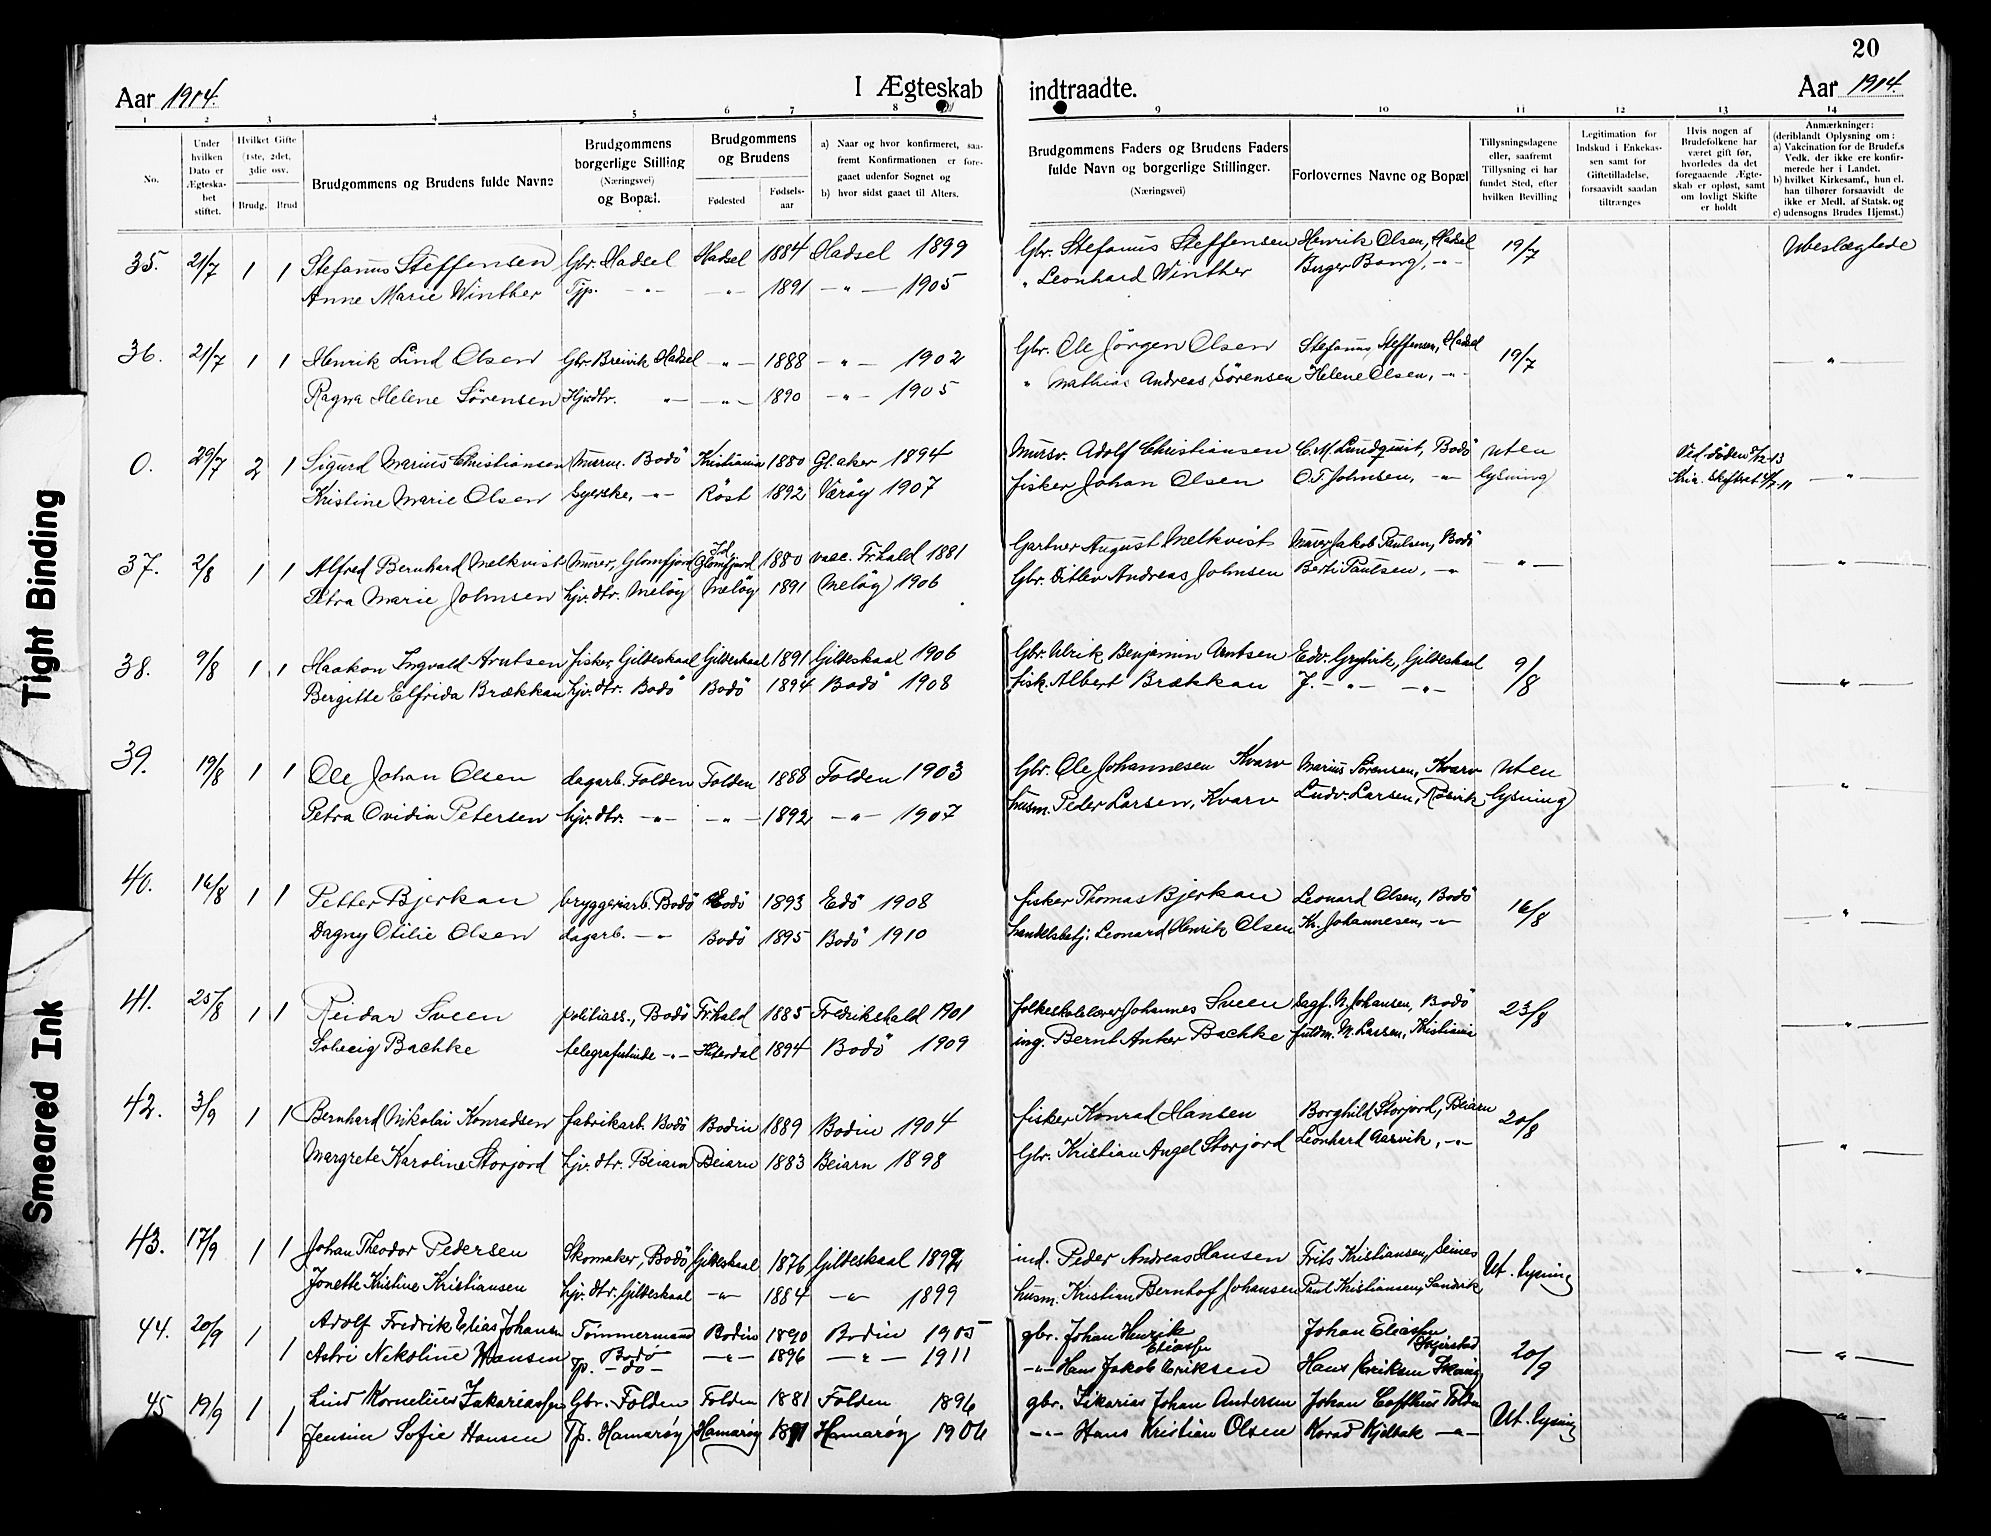 20
Aar 1914.
I Ægteskab
indtraadte.
Aar 1914.
1 2 3 4 5 6 7 8 9 10 11 12 13 14
No.
Under hvilken Dato er Ægteska-bet stiftet.
Hvilket Gifte (1ste, 2det, 3die osv.
Brudg. Brud
Brudgommens og Brudens fulde Navne
Brudgommens borgerlige Stilling (Næringsvei) og Bopæl.
Brudgommens og Brudens
Fødested
Fødsels-aar
a) Naar og hvor konfirmeret, saa-fremt Konfirmationen er fore-gaaet udenfor Sognet og
b) hvor sidst gaaet til Alters.
Brudgommens Faders og Brudens Faders fulde Navn og borgerlige Stillinger.
(Næringsvei)
Forlovernes Navne og Bopæl
Tillysningsdagene eller, saafremt Tillysning ei har fundet Sted, efter hvilken Bevilling
Legitimation for Indskud i Enkekas-sen samt for Giftetilladelse, forsaavidt saadan tiltrænges
Hvis nogen af Brudefolkene har været gift før, hvorledes da det foregaaende Ægte-skab er opløst, samt om lovligt Skifte er holdt
Anmærkninger: (deriblandt Oplysning om: a) Vakcination for de Brudef.s Vedk. der ikke ere konfir-merede her i Landet. b) hvilket Kirkesamf., hun el. han tilhører forsaavidt de ikke er Medl. af Statsk. og c) udensogns Brudes Hjemst.)
35. 21/7 1 1 Stefanus Steffensen Gbr. Hadsel Hadsel 1884 Hadsel 1899 Gbr. Stefanus Steffensen Henrik Olsen, Hadsel 19/7 Ubeslægtede
Anne Marie Winther Tjp. -"- -"- 1891 -"- 1905 " Leonhard Winther Birger Bang, -"-
36. 21/7 1 1 Henrik Lind Olsen Gbr. Breivik Hadsel -"- 1888 -"- 1902 Gbr. Ole Jörgen Olsen Stefanus Steffensen, Hadsel 19/7 -"-
Ragna Helene Sörensen Hjv.dtr. -"- -"- 1890 -"- 1905 " Mathias Andreas Sörensen Helene Olsen, -"-
0. 29/7 2 1 Sigurd Marius Christiansen Murm. Bodö Kristiania 1880 Gl. aker 1894 Mursv. Adolf Christiansen C. M. Lundquist, Bodö Uten Ved döden -"-
Kristine Marie Olsen Syerske, -"- Röst 1892 Væröy 1907 fisker Johan Olsen O.T. Johnsen, -"- lysning
37. 2/8 1 1 Alfred Bernhard Melkvist Murer, Glomfjord Id Glomfjord 1880 vacc. Fr.hald 1881 Gartner August Melkvist Murer Jakob Paulsen, Bodö -"- -"-
Petra Marie Johnsen hjv. dtr. Melöy Melöy 1891 Melöy 1906 Gbr. Ditlev Andreas Johnsen Berti Paulsen, -"-
38. 9/8 1 1 Haakon Ingvald Arntsen fisker, Gildeskaal Gildeskaal 1891 Gildeskaal 1906 Gbr. Ulrik Benjamin Arntsen Edv. Grytvik, Gildeskaal 9/8 -"-
Bergitte Elfrida Brækkan hjv. dtr. Bodö Bodö 1894 Bodö 1908 fisk. Albert Brækkan J. -"- -"-
39. 19/8 1 1 Ole Johan Olsen dagarb. Folden Folden 1888 Folden 1903 Gbr. Ole Johannesen Kvarv Marius Sörensen, Kvarv Uten -"-
Petra Ovidia Petersen hjv. dtr. -"- -"- 1892 -"- 1907 husm. Peder Larsen, Kvarv Ludv. Larsen, Rösvik lysning
40. 16/8 1 1 Petter Bjerkan bryggeriarb. Bodö Bodö 1893 Edö 1908 fisker Thomas Bjerkan Leonard Olsen, Bodö 16/8 -"-
Dagny Otilie Olsen dagarb. -"- Bodö 1895 Bodö 1910 handelsbetj. Leonard Henrik Olsen Kr. Johannesen, -"-
41. 25/8 1 1 Reidar Sveen politiass., Bodö Fr.hald 1885 Fredrikshald 1901 folkeskolelærer Johannes Sveen Dagf. N. Johansen, Bodö 23/8 -"-
Solveig Bachke telegrafistinde -"- Hiterdal 1894 Bodö 1909 ing. Bernt Anker Bachke fuldm. N. Larsen, Kristiania
42. 3/9 1 1 Bernhard Nikolai Konradsen fabrikarb. Bodö Bodin 1889 Bodin 1904 fisker Konrad Hansen Borghild Storjord, Beiarn 20/8 -"-
Margrete Karoline Storjord hjv. dtr. Beiarn Beiarn 1883 Beiarn 1898 Gbr. Kristian Angel Storjord Leonhard Aarvik, -"-
43. 17/9 1 1 Johan Theodor Pedersen Skomaker, Bodö Gildeskaal 1876 Gildeskaal ind. Peder Andreas Hansen Frits Kristiansen, Seines Ut. lysning -"-
Jonette Kristine Kristiansen hjv. dtr., Gildeskaal -"- 1884 -"- 1899 husm. Kristian Bernhof Johansen Paul Kristiansen, Sandvik
44. 20/9 1 Adolf Fredrik Elias Johansen Tömmermand Bodin 1890 Bodin 1905 gbr. Johan Henrik Eliassen Johan Eliassen 20/9 -"-
1 Astri Nekoline Hansen Tp. Bodö -do- -"- 1896 -"- 1911 -"- Hans Jakob Eriksen Hans Eriksen
45 19/9 1 Lind Kornelius Zakariassen Gbr. Folden Folden 1881 Folden 1896 gbr. Sikarias Johan Andersen Johan Ut. lysning -"-
1 Jensine Sofie Hansen Tp. Hamaröy Hamaröy Hamaröy 1906 -"- Hans Kristian Olsen Korad Kjelbak -"-
Tight Binding
Smeared Ink